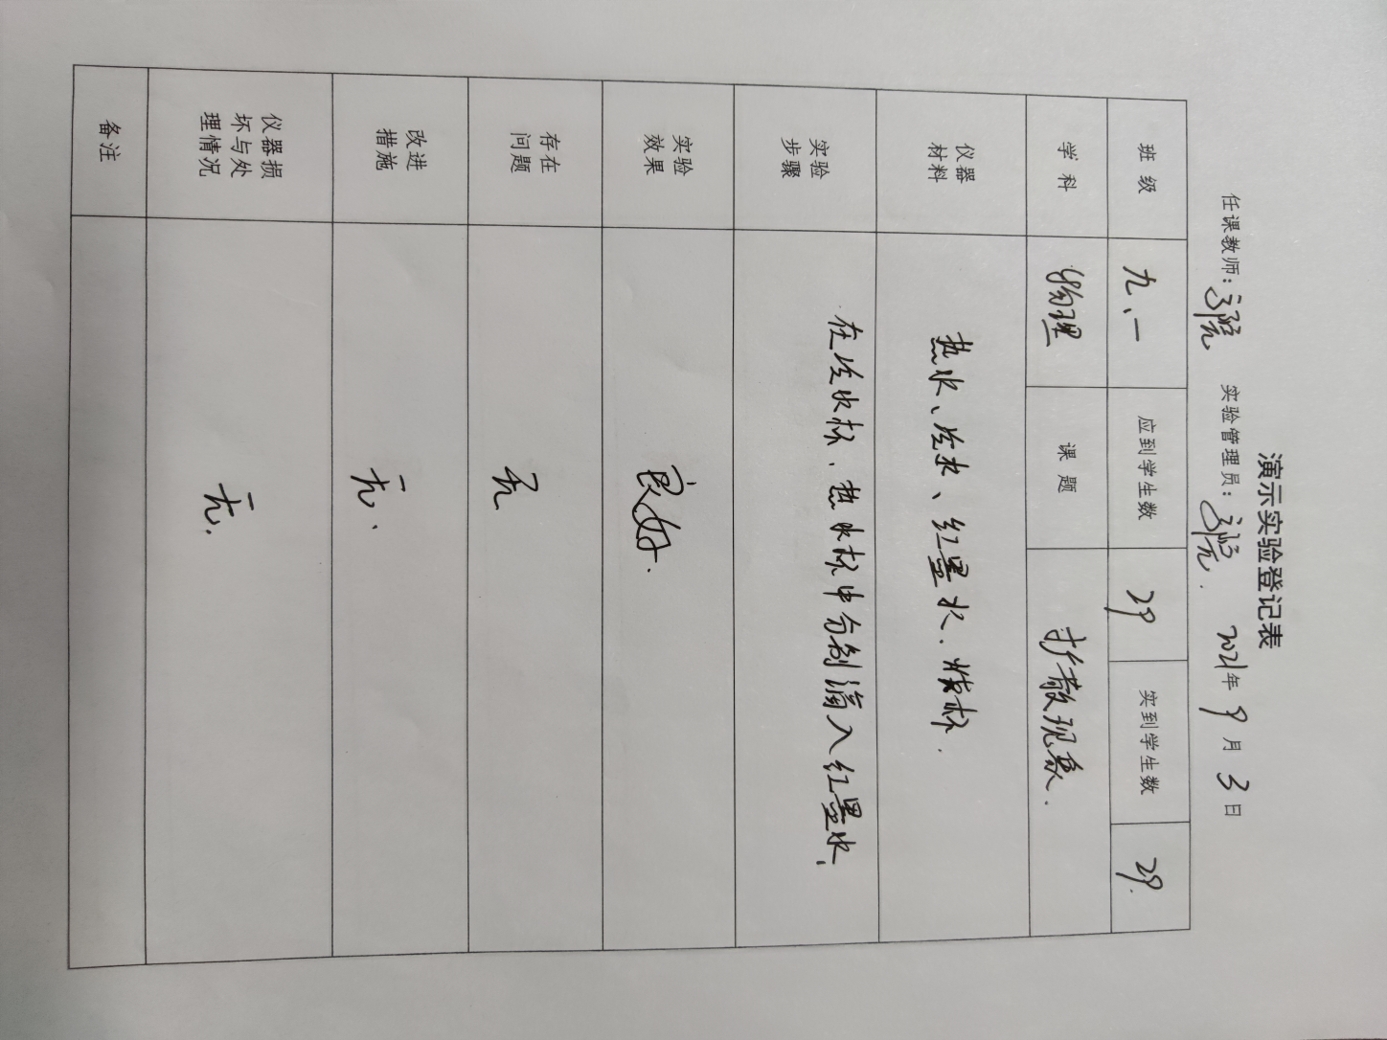 演示实验登记表
任课教师: 实验管理员: 2021年 9 月 3 日
班 级 九、一 应到学生数 29 实到学生数 29.
学 科 物理 课 题 扩散现象.
仪器材料 热水、冷水、红墨水、烧杯.
实验步骤 在冷水杯、热水杯中分别滴入红墨水.
实验效果 良好.
存在问题 无
改进措施 无.
仪器损坏与处理情况 无.
备注